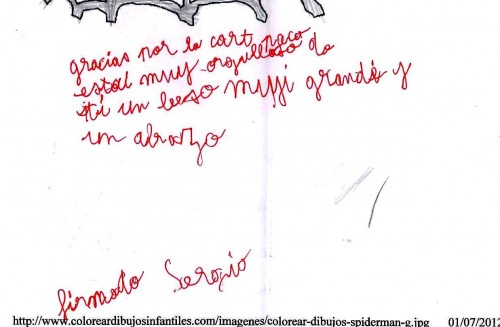 gracias por la cart paco
estoi muy orgulloso do
ti un beso muji grande y
un abrazo
firmado Sergio
http://www.coloreardibujosinfantiles.com/imagenes/colorear-dibujos-spiderman-g.jpg 01/07/2012